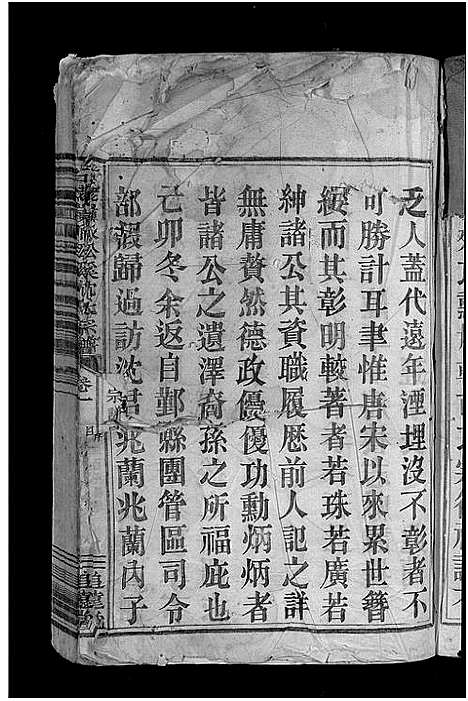 乏人蓋代遠年湮埋沒不彰者不
可勝計耳聿惟唐宋以來累世簪
纓而其彰明較著者若珠若廣若
紳諸公其資職履歷前人記之詳
無庸贅然德政優優功勳炳炳者
皆諸公之遺澤裔孫之所福庇也
己卯冬余返自鄞縣團管區司令
部假歸過訪沈君兆蘭兆蘭內子
沈氏宗譜
卷一